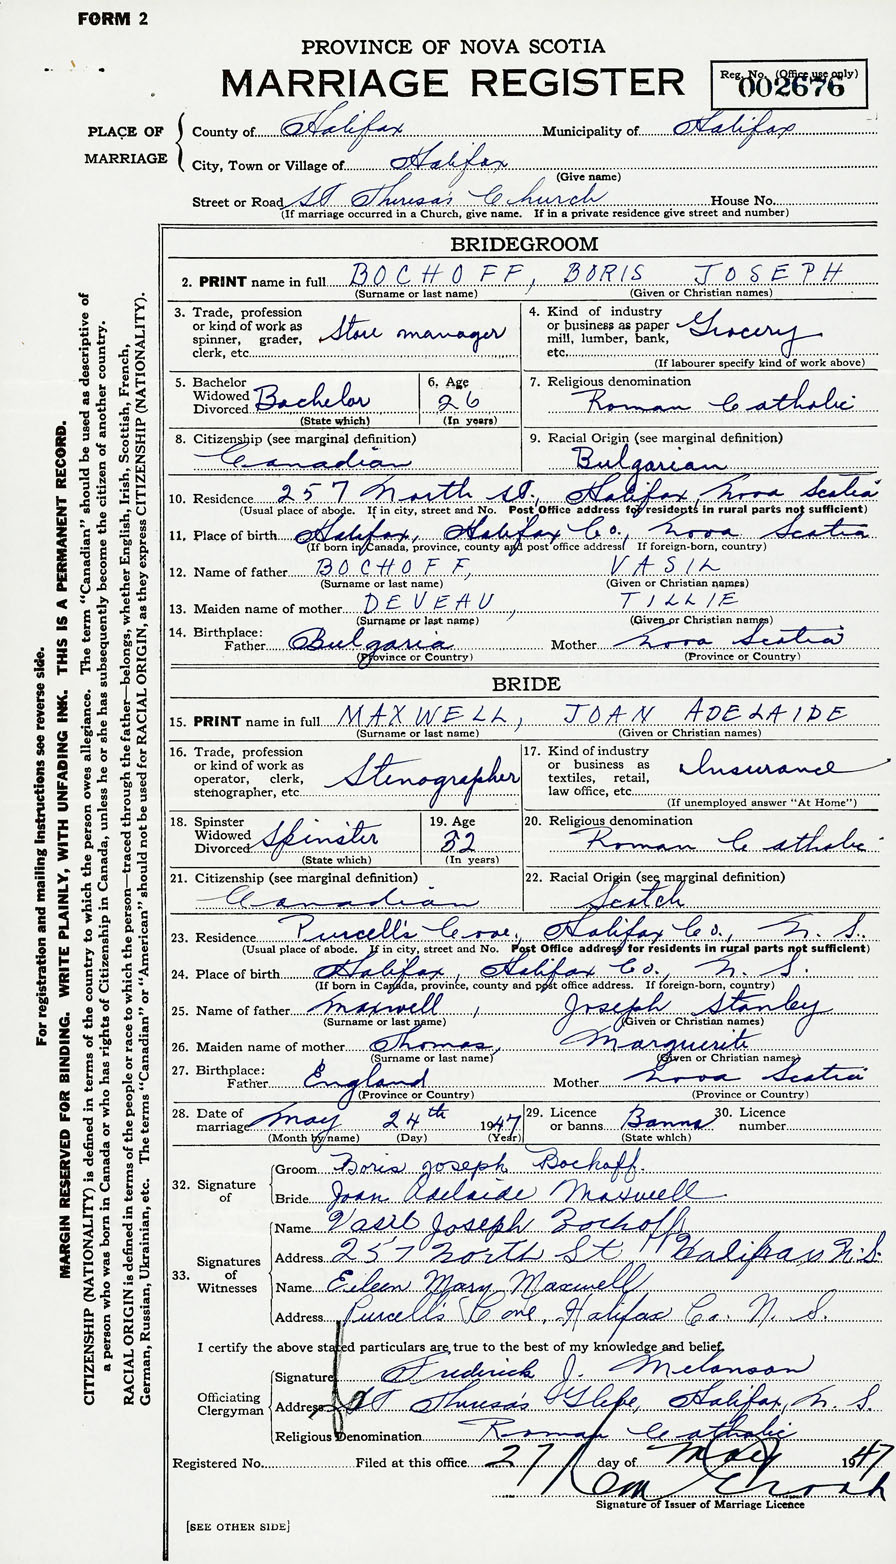 FORM 2
PROVINCE OF NOVA SCOTIA
MARRIAGE REGISTER
Reg. No. (Office use only)
002676
PLACE OF MARRIAGE
County of Halifax Municipality of Halifax
City, Town or Village of Halifax
(Give name)
Street or Road St Theresa's Church House No.
(If marriage occurred in a Church, give name. If in a private residence give street and number)
BRIDEGROOM
2. PRINT name in full BOCHOFF, BORIS JOSEPH
(Surname or last name) (Given or Christian names)
3. Trade, profession or kind of work as spinner, grader, clerk, etc. Store manager
4. Kind of industry or business as paper mill, lumber, bank, etc. Grocery
(If labourer specify kind of work above)
5. Bachelor Widowed Divorced Bachelor
(State which)
6. Age 26
(In years)
7. Religious denomination
Roman Catholic
8. Citizenship (see marginal definition)
Canadian
9. Racial Origin (see marginal definition)
Bulgarian
10. Residence 257 North St., Halifax, Nova Scotia
(Usual place of abode. If in city, street and No. Post Office address for residents in rural parts not sufficient)
11. Place of birth Halifax, Halifax Co., Nova Scotia
(If born in Canada, province, county and post office address. If foreign-born, country)
12. Name of father BOCHOFF, VASIL
(Surname or last name) (Given or Christian names)
13. Maiden name of mother DEVEAU, TILLIE
(Surname or last name) (Given or Christian names)
14. Birthplace:
Father Bulgaria Mother Nova Scotia
(Province or Country) (Province or Country)
BRIDE
15. PRINT name in full MAXWELL, JOAN ADELAIDE
(Surname or last name) (Given or Christian names)
16. Trade, profession or kind of work as operator, clerk, stenographer, etc. Stenographer
17. Kind of industry or business as textiles, retail, law office, etc. Insurance
(If unemployed answer "At Home")
18. Spinster Widowed Divorced Spinster
(State which)
19. Age
(In years)
20. Religious denomination
Roman Catholic
21. Citizenship (see marginal definition)
Canadian
22. Racial Origin (see marginal definition)
Scotch
23. Residence Purcell's Cove, Halifax Co., N. S.
(Usual place of abode. If in city, street and No. Post Office address for residents in rural parts not sufficient)
24. Place of birth Halifax, Halifax Co., N. S.
(If born in Canada, province, county and post office address. If foreign-born, country)
25. Name of father Maxwell, Joseph Stanley
(Surname or last name) (Given or Christian names)
26. Maiden name of mother Thomas, Marguerite
(Surname or last name) (Given or Christian names)
27. Birthplace:
Father England Mother Nova Scotia
(Province or Country) (Province or Country)
28. Date of marriage May 24th 1947
(Month by name) (Day) (Year)
29. Licence or banns Banns
(State which)
30. Licence number
32. Signature of
Groom Boris Joseph Bochoff.
Bride Joan Adelaide Maxwell
33. Signatures of Witnesses
Name Vasil Joseph Bochoff
Address 257 North St Halifax N.S.
Name Eileen Mary Maxwell
Address Purcell's Cove, Halifax Co. N. S.
I certify the above stated particulars are true to the best of my knowledge and belief.
Officiating Clergyman
Signature Frederick J. Melanson
Address St Theresa's Glebe, Halifax, N. S.
Religious Denomination Roman Catholic
Registered No. Filed at this office 27 day of May 1947
Signature of Issuer of Marriage Licence
[SEE OTHER SIDE]
For registration and mailing instructions see reverse side.
MARGIN RESERVED FOR BINDING. WRITE PLAINLY, WITH UNFADING INK. THIS IS A PERMANENT RECORD.
CITIZENSHIP (NATIONALITY) is defined in terms of the country to which the person owes allegiance. The term "Canadian" should be used as descriptive of
a person who was born in Canada or who has rights of Citizenship in Canada, unless he or she has subsequently become the citizen of another country.
RACIAL ORIGIN is defined in terms of the people or race to which the person—traced through the father—belongs, whether English, Irish, Scottish, French,
German, Russian, Ukrainian, etc. The terms "Canadian" or "American" should not be used for RACIAL ORIGIN, as they express CITIZENSHIP (NATIONALITY).